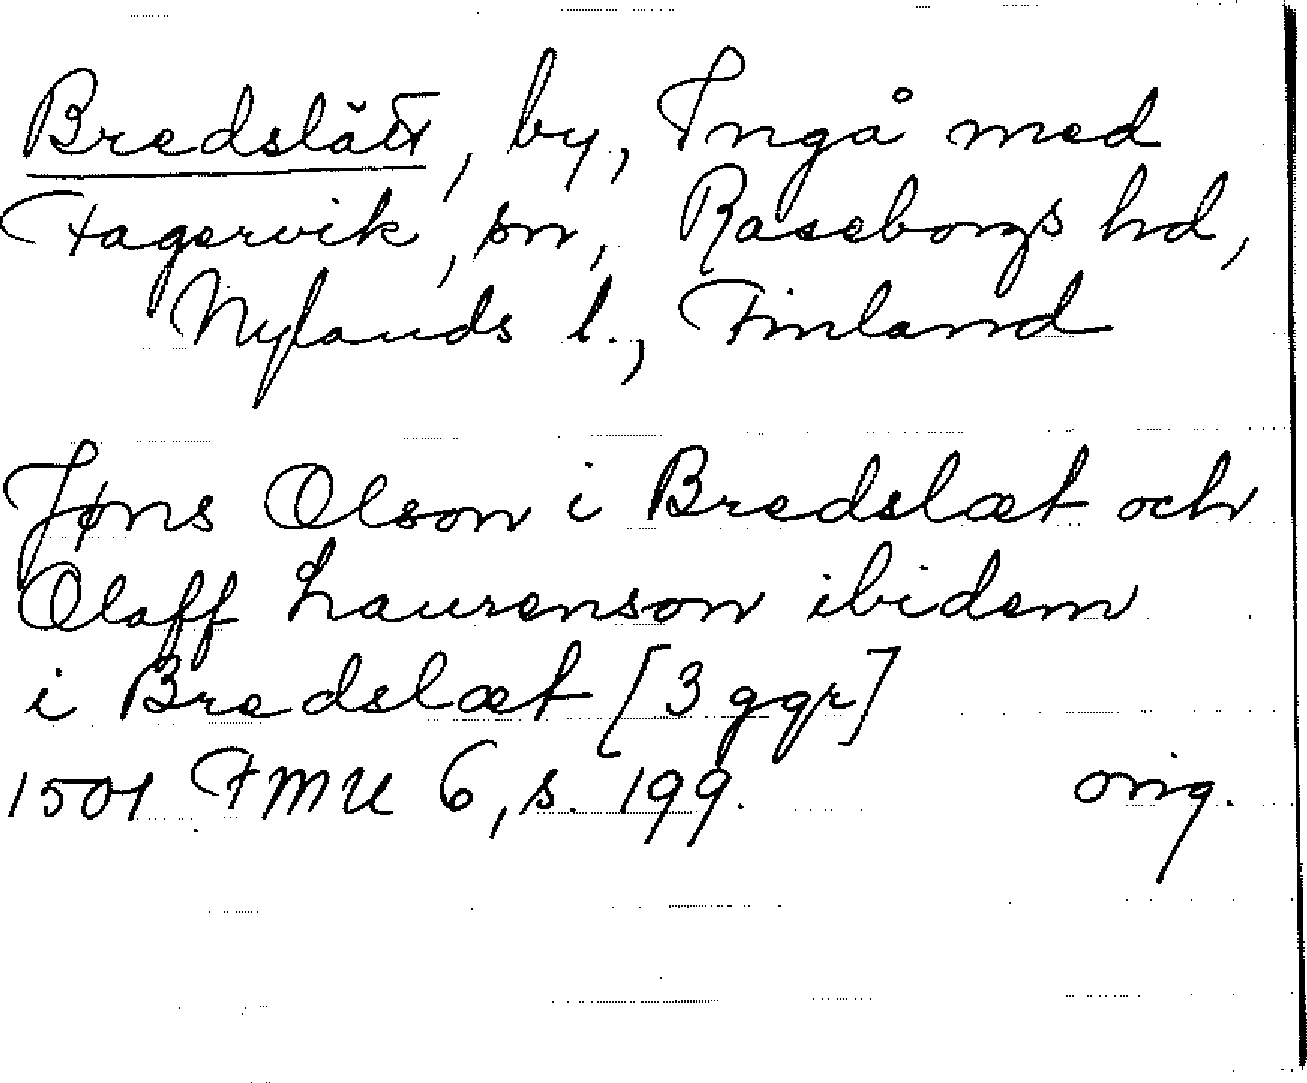 Bredslätt, by, Ingå med
Fagervik, sn, Raseborgs hd,
Nylands l., Finland
Jøns Olson i Bredslæt och
Olaff Laurenson ibidem
i Bredslæt [3 ggr]
1501 FMU 6, s. 199. orig.